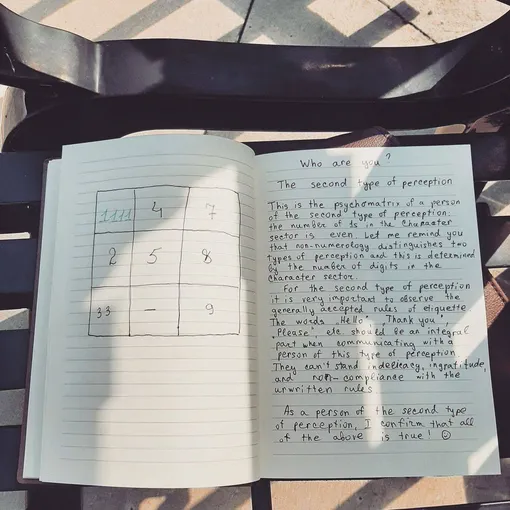 1111 4 7
2 5 8
33 – 9
Who are you?
The second type of perception
This is the psychomatrix of a person
of the second type of perception:
the number of 1s in the Character
sector is even. Let me remind you
that non-numerology distinguishes two
types of perception and this is determined
by the number of digits in the
character sector.
For the second type of perception
it is very important to observe the
generally accepted rules of etiquette.
The words „Hello", „Thank you",
„Please", etc. should be an integral
part when communicating with a
person of this type of perception.
They can't stand indelicacy, ingratitude,
and non-compliance with the
unwritten rules.
As a person of the second type
of perception, I confirm that all
of the above is true! ☺